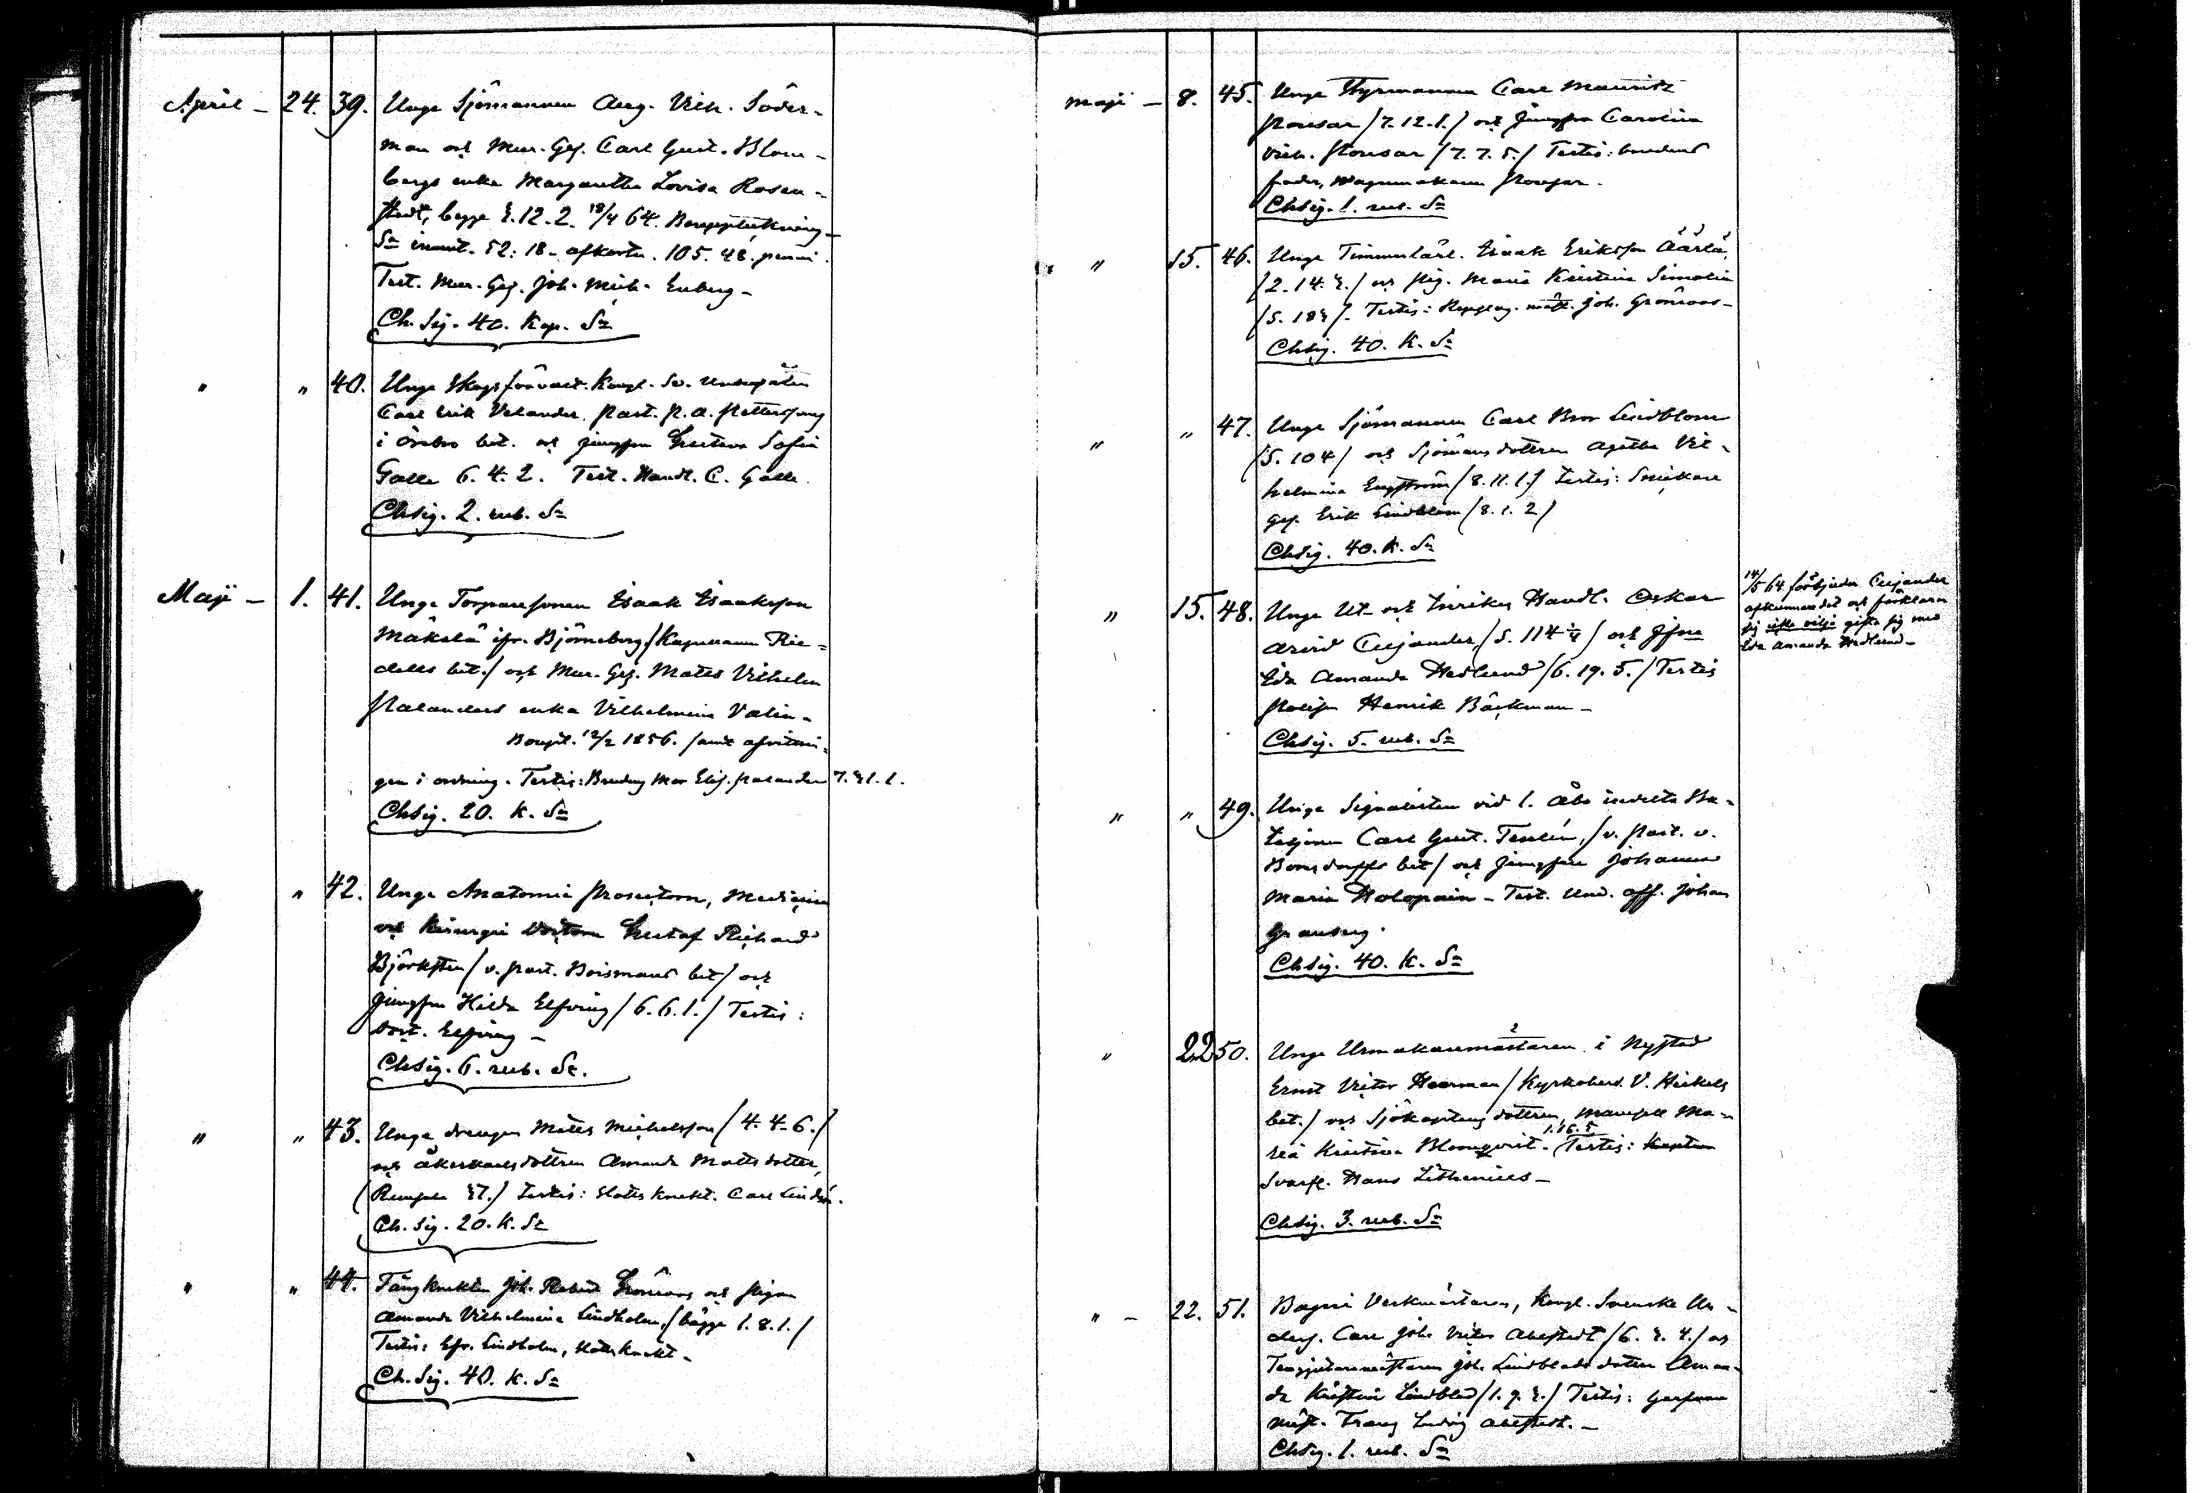 April – 24. 39. Unge Sjömannen Aug. Vilh. Söder-
man och Mur. Ges. Carl Gust. Blom-
bergs enka Margaretha Lovisa Rosen-
stedt, begge 12.2. 18/4 64. Bouppteckning
Sn inneh. 52: 18 – afkortn. 105. 48.
Test. Mur. Ges. Joh. Mich. Enberg –
Ch. Sig. 40. Kop. Sr
" " 40. Unge Skogsförvalt. Kongl. Sv. Undersåten
Carl Erik Velander, Past. P. A. Petterssons
i Örebro bet. och jungfru Gustava Sofia
Galle 6. 4. 2. Test. Handl. C. Galle.
Chsig. 2. rub. Sr
Maji – 1. 41. Unge Torparesonen Isaak Isaaksson
Mäkelä ifr. Björneborg / Kapellanen
bet./ och Mur. Ges. Mats Vilhelm
Palanders enka Vilhelmina Valin –
Boupt. 12/2 1856. samt afvittrin-
gen i ordning. Testis: Brudens Mor Elis. Palander 7. 1. 1.
Chsig. 20. K. Sr
" " 42. Unge Anatomie Prosectorn, Medicine
och Kirurgie Doctorn Gustaf Richard
Björksten / v. Past. Boismans bet/ och
jungfru Hilda Elfving / 6. 6. 1. / Testis:
Elfving –
Chsig. 6. rub. Sr.
" " 43. Unge drengen Mats Michelsson / 4. 4. 6. /
och åkerkarlsdottren Amanda Mattsdotter,
Testis: Slottsknekt. Carl Lindén.
Ch. Sig. 20. K. Sr
" " 44. Fångknekten Joh. Grönroos och pigan
Amanda Vilhelmina Lindholm, / bägge 1. 8. 1. /
Testis: Lindholm, Slottsknekt –
Ch. Sig. 40. K. Sr
Maji – 8. 45. Unge Styrmannen Carl Mauritz
Ponsar / 7. 12. 1. / och Jungfru Carolina
Vilh. Ponsar / 7. 7. 5. / Testis: brudens
fader, Wagnmakaren Ponsar.
Chsig. 1. rub. Sr
" 15. 46. Unge Timmerkarl. Isaak Eriksson Äärlä,
/ 2. 14. / och pig. Maria Kristina Simolin
/ 5. 18 /. Testis: Joh. Grönroos –
Chsig. 40. K. Sr
" " 47. Unge Sjömannen Carl Bror Lindblom
/ 5. 104 / och Sjömansdottren Agatha Vil-
helmina Engström / 8. 11. 1. / Testis: Snickare
Ges. Erik Lindblom / 8. 1. 2 /
Chsig. 40. K. Sr
" 15. 48. Unge Ut- och Inrikes Handl. Oskar
Arvid Cejander, / 5. 114 / och Jfru
Ida Amanda Hedlund / 6. 19. 5. / Testis
Henrik Bäckman –
Chsig. 5. rub. Sr
14/5 64 förbjuder Cejander
afkunnandet och förklarar
sig icke vilja gifta sig med
Ida Amanda Hedlund –
" " 49. Unge Signalisten vid 1. Åbo indelta Ba-
taljonen Carl Gust. Tenlén, / v. Past. v.
Bonsdorffs bet / och jungfru Johanna
Maria Holopain – Test. Und. off. Johan
Granberg.
Chsig. 40. K. Sr
" 22 50. Unge Urmakaremästaren i Nystad
Ernst Victor Heerman / Kyrkoherd. V. Heikels
bet. / och Sjökaptens dottren, Mamsell Ma-
ria Kristina Blomqvist. 1. 16. 5 Testis:
Svarfv. Hans Lithenius –
Chsig. 3. rub. Sr
" – 22. 51. Bageri Verkmästaren, Kongl. Svenska Un-
ders. Carl Joh. Victor Ahlstedt / 6. 4. / och
Joh. Lindblads dotter Aman-
da Kristina Lindblad / 1. 9. / Testis: Garfvare
mäst. Frans Ludvig Ahlstedt. –
Chsig. 1. rub. Sr